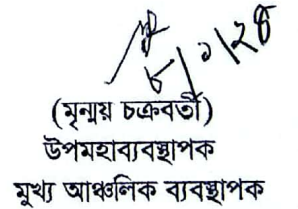 ৮/১/২৪
(মৃন্ময় চক্রবর্তী)
উপমহাব্যবস্থাপক
মুখ্য আঞ্চলিক ব্যবস্থাপক